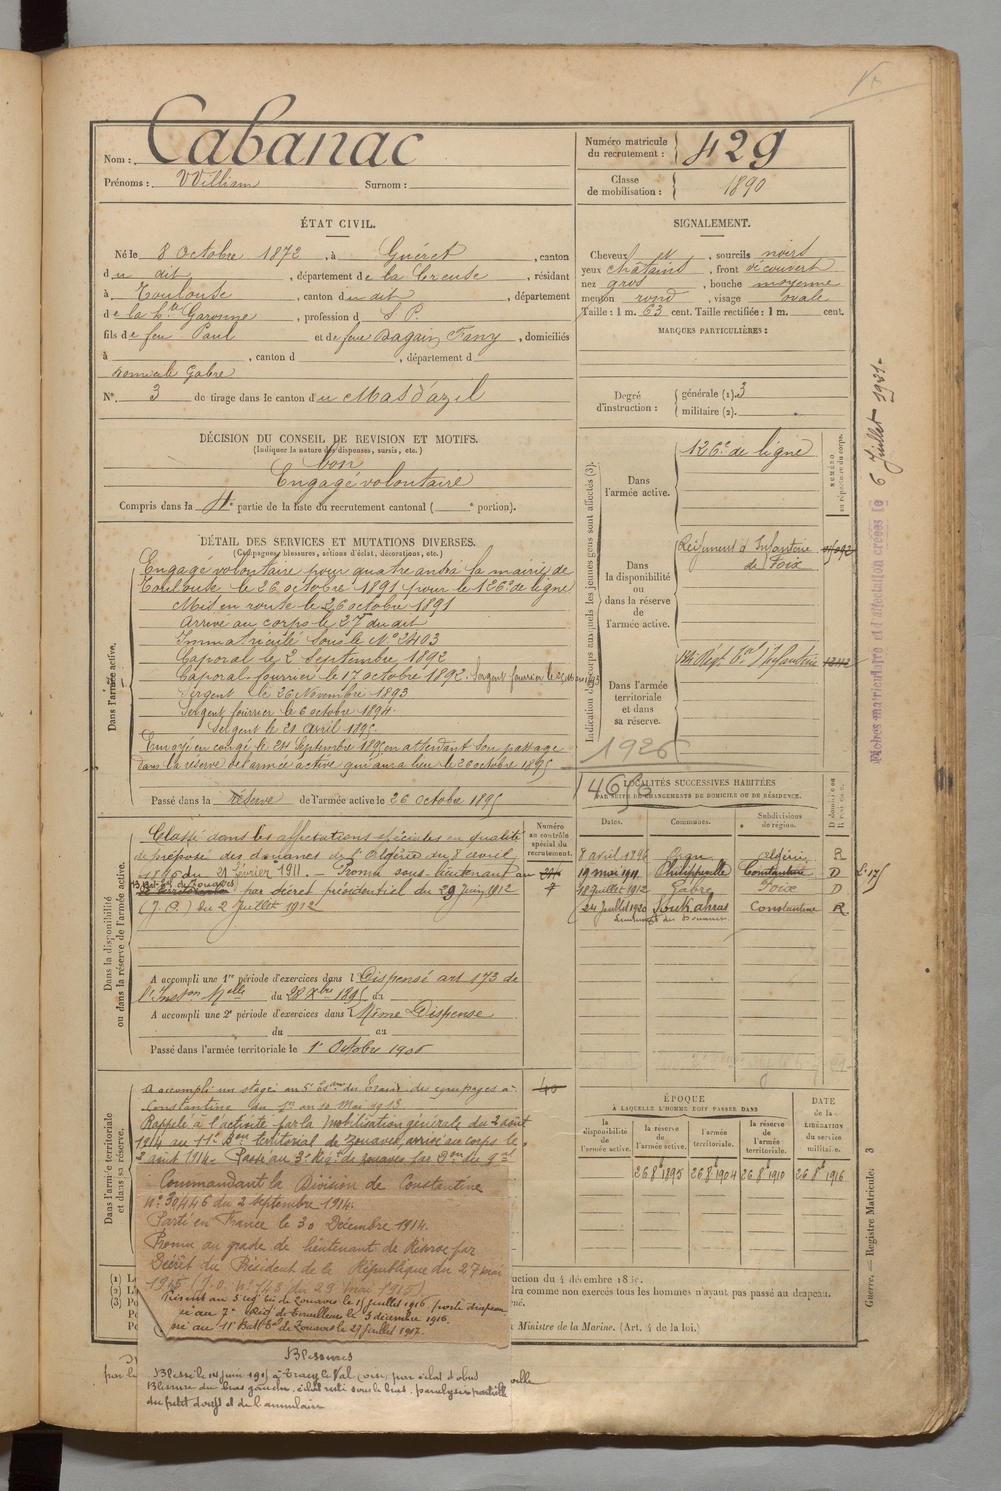 Nom : Cabanac
Prénoms : William Surnom :
Numéro matricule
du recrutement : 429
Classe
de mobilisation : 1890
ÉTAT CIVIL.
Né le 8 Octobre 1872, à Guéret, canton
du dit, département de la Creuse, résidant
à Toulouse, canton du dit, département
de la hte Garonne, profession d S P.
fils de feu Paul et de feue Dagain Fany, domiciliés
à , canton d , département d
domicile Gabre
N° 3 de tirage dans le canton du Mas d'azil
SIGNALEMENT.
Cheveux et , sourcils noirs
yeux châtains , front découvert
nez gros , bouche moyenne
menton rond , visage ovale
Taille : 1 m. 63 cent. Taille rectifiée : 1 m. cent.
MARQUES PARTICULIÈRES :
Degré
d'instruction :
générale (1). 3
militaire (2).
DÉCISION DU CONSEIL DE REVISION ET MOTIFS.
(Indiquer la nature des dispenses, sursis, etc.)
bon
Engagé volontaire
Compris dans la 4e partie de la liste du recrutement cantonal ( e portion).
DÉTAIL DES SERVICES ET MUTATIONS DIVERSES.
(Campagnes, blessures, actions d'éclat, décorations, etc.)
Dans l'armée active.
Engagé volontaire pour quatre ans à la mairie de
Toulouse le 26 octobre 1891 pour le 126e de ligne
Mis en route le 26 octobre 1891
Arrivé au corps le 27 du dit
Immatriculé sous le N° 2403
Caporal le 2 Septembre 1892
Caporal fourrier le 17 octobre 1892. Sergent fourrier le
Sergent le 26 Novembre 1893
Sergent fourrier le 6 octobre 1894.
Sergent le 21 avril 1895.
Envoyé en congé le 24 Septembre 1895 en attendant son passage
dans la réserve de l'armée active qui aura lieu le 26 octobre 1895
Passé dans la réserve de l'armée active le 26 octobre 1895
Indication des corps auxquels les jeunes gens sont affectés (3).
NUMÉRO
au répertoire du corps.
Dans
l'armée active.
126e de ligne
Dans
la disponibilité
ou
dans la réserve
de
l'armée active.
Régiment d'Infanterie
de Foix
Dans l'armée
territoriale
et dans
sa réserve.
Régt Ter d'Infanterie
1926
Fiches matriculaire et d'affectation créées le 6 Juillet 1931.
LOCALITÉS SUCCESSIVES HABITÉES
PAR SUITE DE CHANGEMENTS DE DOMICILE OU DE RÉSIDENCE.
Dates. Communes. Subdivisions
de région.
8 avril 1896 Oran Algérie R
19 mai 1911 Philippeville Constantine D
12 Juillet 1912 Gabre Foix D
24 Juillet 1920 Souk ahras Constantine R
Lieutenant des Douanes
Dans la disponibilité
ou dans la réserve de l'armée active.
Numéro
au contrôle
spécial du
recrutement.
Classé dans les affectations spéciales en qualité
de préposé des douanes de l'Algérie du 8 avril
1896 du 21 février 1911. - Promu sous-lieutenant au
par décret présidentiel du 29 juin 1912
(J. O.) du 2 Juillet 1912
A accompli une 1re période d'exercices dans l Dispensé art 173 de
l'Inston Melle du 28 Xbre 1895 au
A accompli une 2e période d'exercices dans l Même Dispense
du au
Passé dans l'armée territoriale le 1er Octobre 1905
Dans l'armée territoriale
et dans sa réserve.
A accompli un stage au 5e Esdron du Train des équipages à
Constantine du 1er au 10 Mai 1913
Rappelé à l'activité par la mobilisation générale du 2 août
1914 au 11e Bon territorial de zouaves, arrivé au corps le
2 août 1914. Passé au 3e Régt de zouaves par Don du Gal
Commandant la Division de Constantine
n° 30446 du 2 septembre 1914.
Parti en France le 30 Décembre 1914.
Promu au grade de lieutenant de Réserve par
Décret du Président de la République du 27 mai
1915 (J.O. n° 143 du 29 mai 1915)
Passé au 7e Régt de Tirailleurs le 3 décembre 1916.
Passé au 11e Batt Tal de Zouaves le 27 juillet 1917.
Blessures
Blessé le 14 juin 1915 à Tracy le Val (Oise) par éclat d'obus
Blessure du bras gauche, éclat resté sous le bras, paralysie partielle
du petit doigt et de l'annulaire
ÉPOQUE
À LAQUELLE L'HOMME DOIT PASSER DANS
DATE
de la
LIBÉRATION
du service
militaire.
la
disponibilité
de
l'armée active.
la réserve
de
l'armée active.
l'armée
territoriale.
la réserve
de
l'armée
territoriale.
26 8bre 1895 26 8bre 1904 26 8bre 1910 26 8bre 1916
uction du 4 décembre 18
dra comme non exercés tous les hommes n'ayant pas passé au drapeau.
Ministre de la Marine. (Art. 4 de la loi.)
Guerre. — Registre Matricule. 3